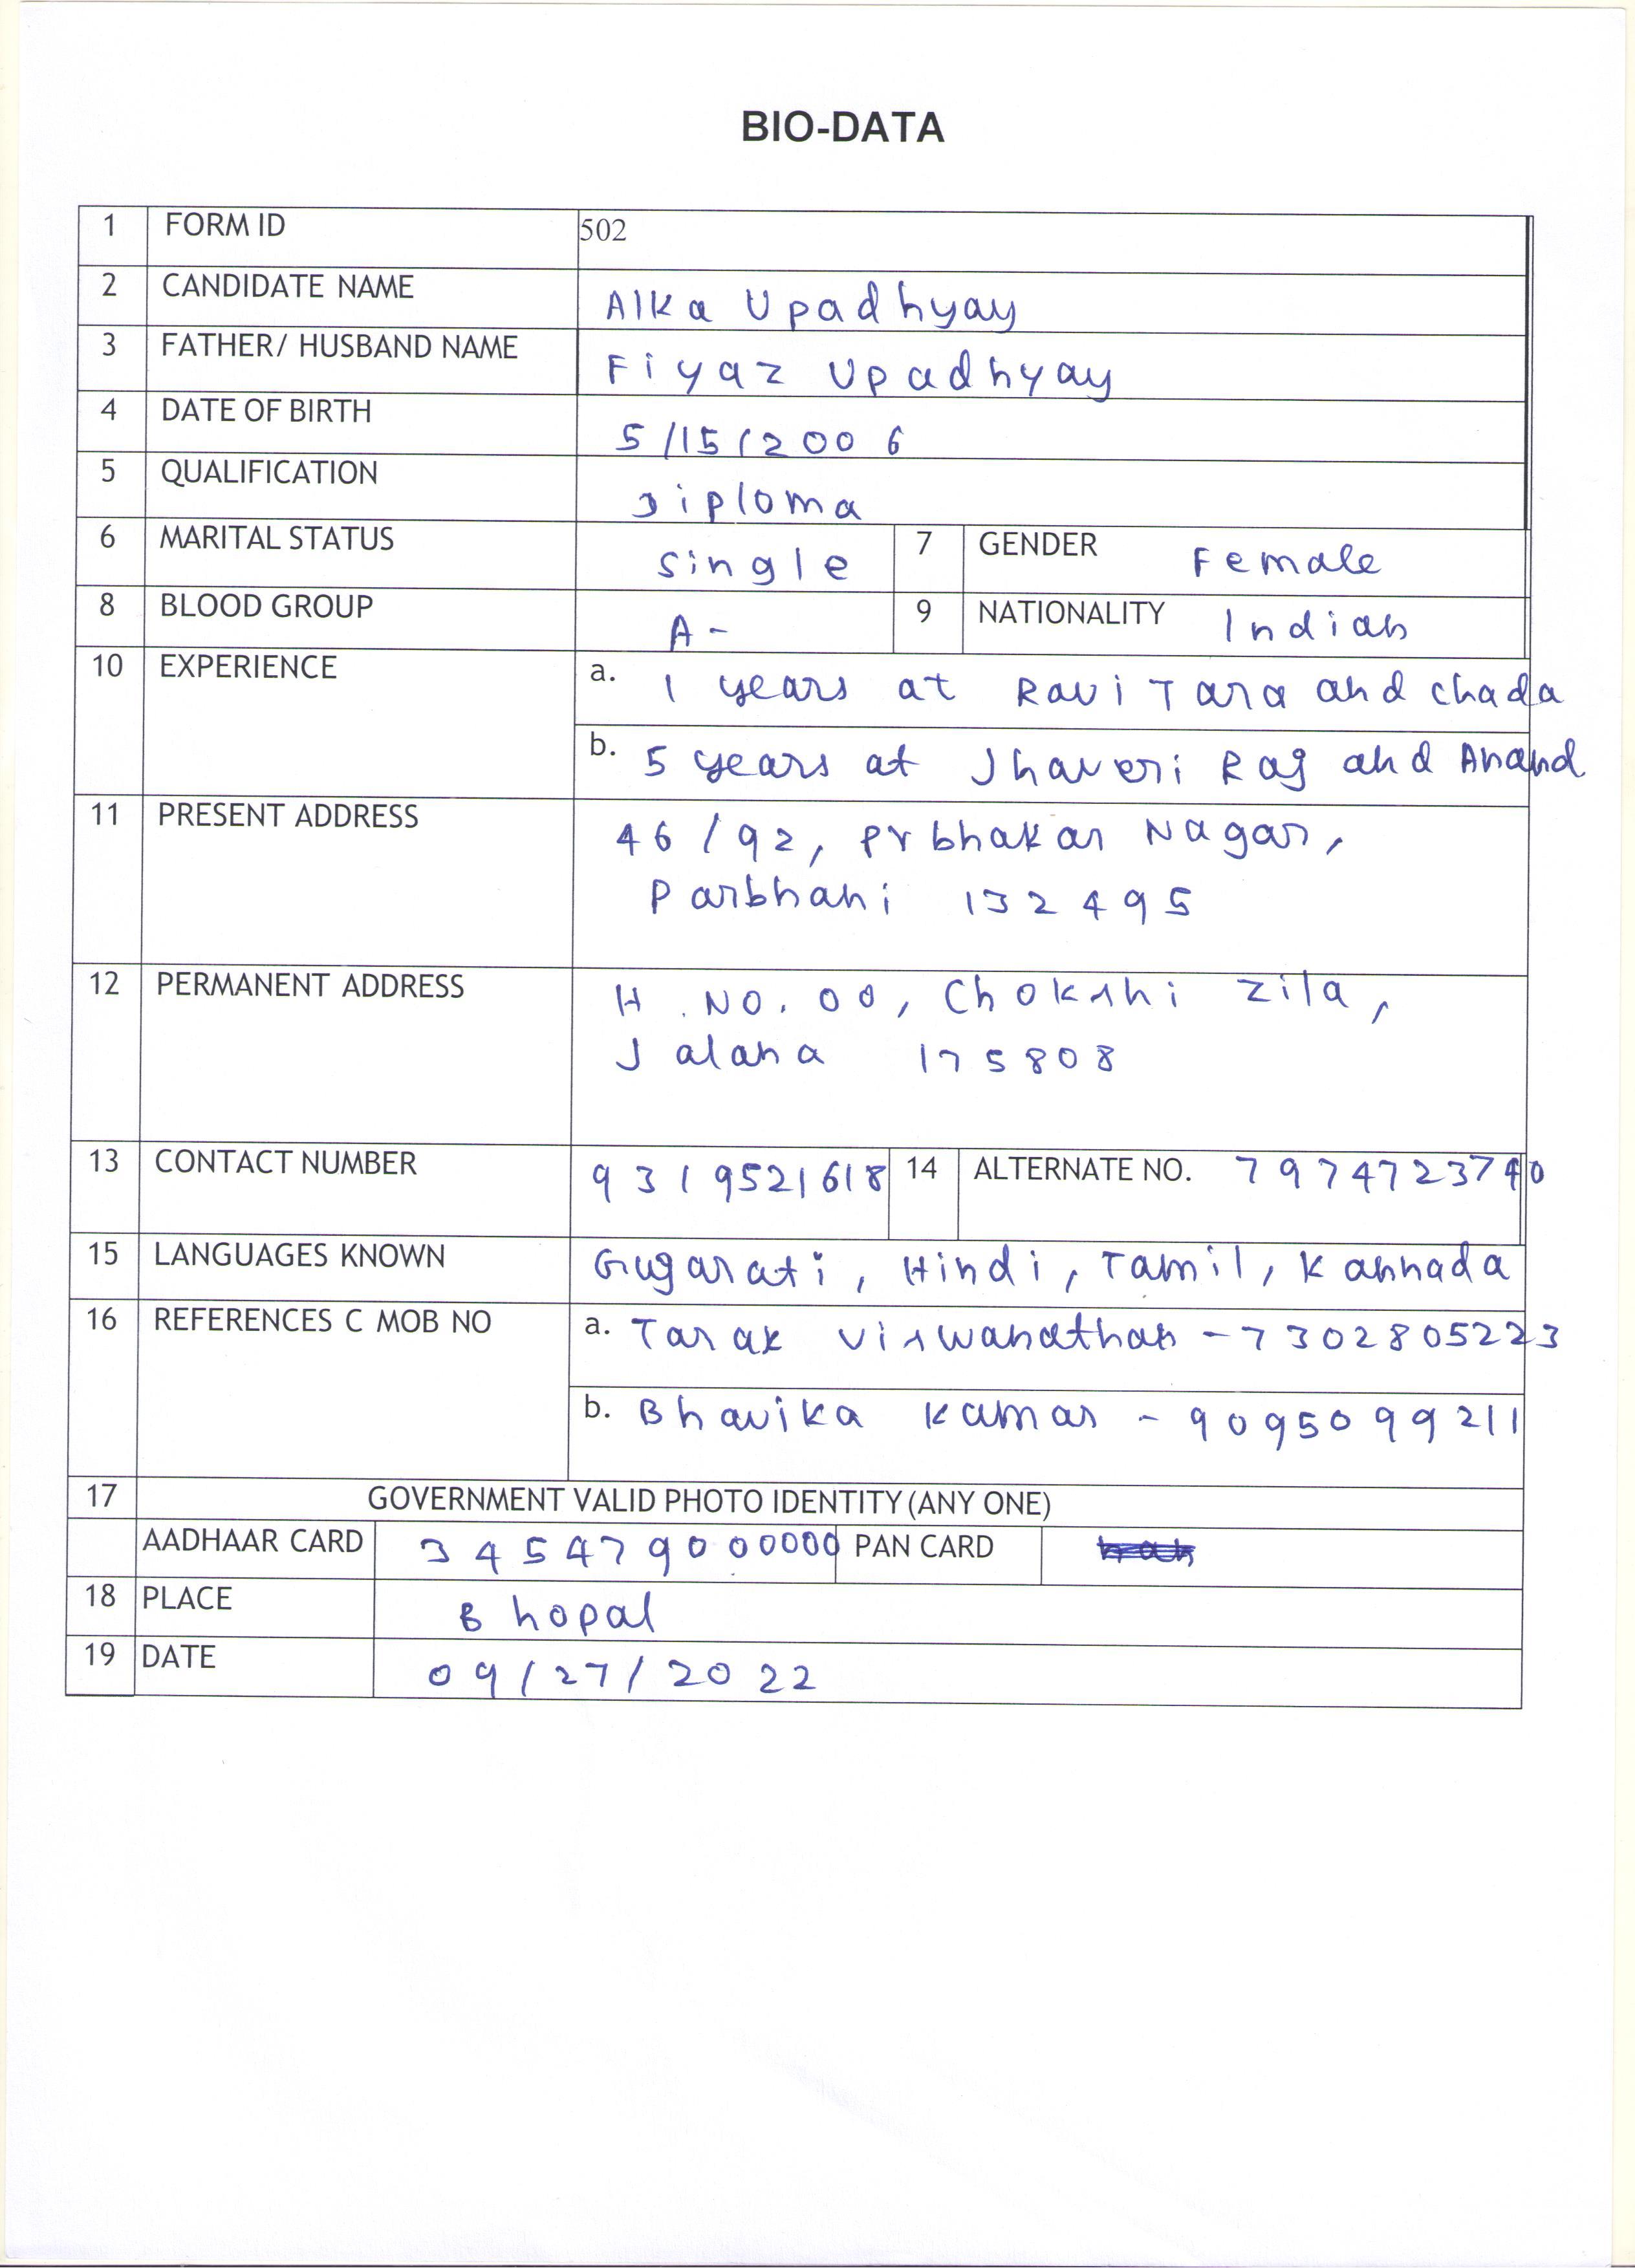 BIO-DATA
1 FORM ID 502
2 CANDIDATE NAME Alka Upadhyay
3 FATHER/ HUSBAND NAME Fiyaz Upadhyay
4 DATE OF BIRTH 5/15/2006
5 QUALIFICATION Diploma
6 MARITAL STATUS Single 7 GENDER Female
8 BLOOD GROUP A- 9 NATIONALITY Indian
10 EXPERIENCE a. 1 years at Ravi Tara and Chada
b. 5 years at Jhaveri Raj and Anand
11 PRESENT ADDRESS 46/92, Prbhakar Nagar,
Parbhani 132495
12 PERMANENT ADDRESS H.NO. 00, Chokshi Zila,
Jalana 175808
13 CONTACT NUMBER 9319521618 14 ALTERNATE NO. 7974723740
15 LANGUAGES KNOWN Gujarati, Hindi, Tamil, Kannada
16 REFERENCES C MOB NO a. Tarak Viswanathan - 7302805223
b. Bhavika Kumar - 9095099211
17 GOVERNMENT VALID PHOTO IDENTITY (ANY ONE)
AADHAAR CARD 345479000000 PAN CARD
18 PLACE Bhopal
19 DATE 09/27/2022